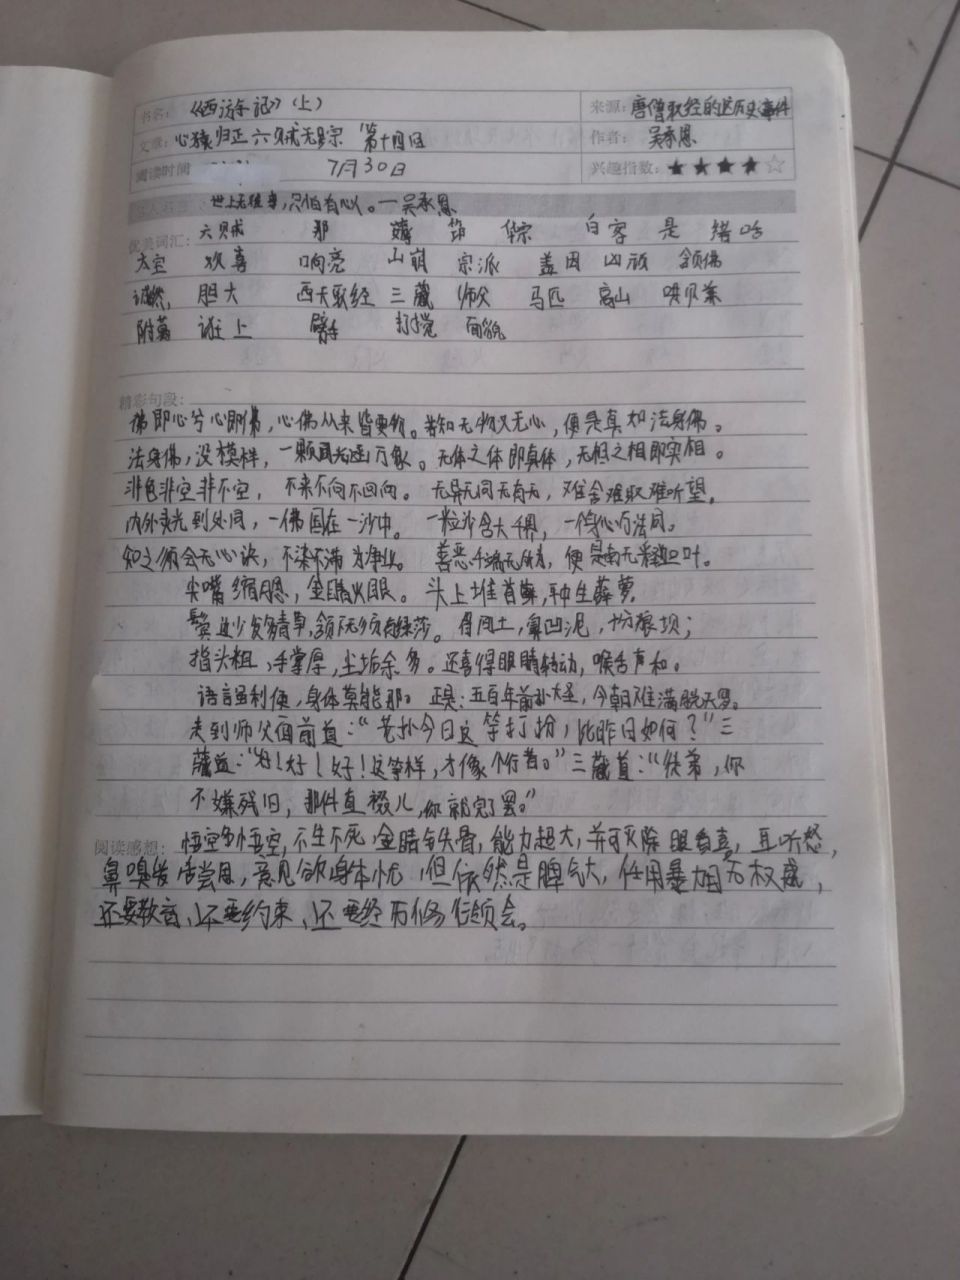 书名：《西游记》（上） 来源：唐僧取经的历史事件
文章：心猿归正 六贼无踪 第十四回 作者：吴承恩
阅读时间 7月30日 兴趣指数：★★★★☆
世上无难事，只怕有心。—吴承恩
优美词汇：六贼 那 踪 白客 是
太空 欢喜 响亮 山崩 宗派 盖因 凶顽 领佛
胆大 西天取经 三藏 师父 马匹 高山
附葛 班上 臂手 打搅 面貌
精彩句段：
佛即心兮心即佛，心佛从来皆要物。若知无物又无心，便是真如法身佛。
法身佛，没模样，一颗圆光涵万象。无体之体即真体，无相之相即实相。
非色非空非不空，不来不向不回向。无异无同无有无，难舍难取难听望。
内外灵光到处同，一佛国在一沙中。一粒沙含大千界，一个身心万法同。
知之须会无心诀，不染不滞为净业。善恶千端无所为，便是南无释迦叶。
尖嘴缩腮，金睛火眼。头上堆苔藓，耳中生薜萝。
鬓边少发多青草，颔下无须有绿莎。眉间土，鼻凹泥，十分狼坝；
指头粗，手掌厚，尘垢余多。还喜得眼睛转动，喉舌声和。
语言虽利便，身体莫能那。正是：五百年前孙大圣，今朝难满脱天罗。
走到师父面前道：“老孙今日这等打扮，比昨日如何？”三
藏道：“好！好！好！这等样，才像个行者。”三藏道：“徒弟，你
不嫌残旧，那件直裰儿，你就穿了罢。”
阅读感想：悟空多悟空，不生不死，金睛铁骨，能力超大，并可灭除眼看喜，耳听怒，
鼻嗅爱 舌尝思，意见欲 身本忧，但依然是脾气大，任用暴力 无权威，
还要教育，还要约束，还要经历修行领会。